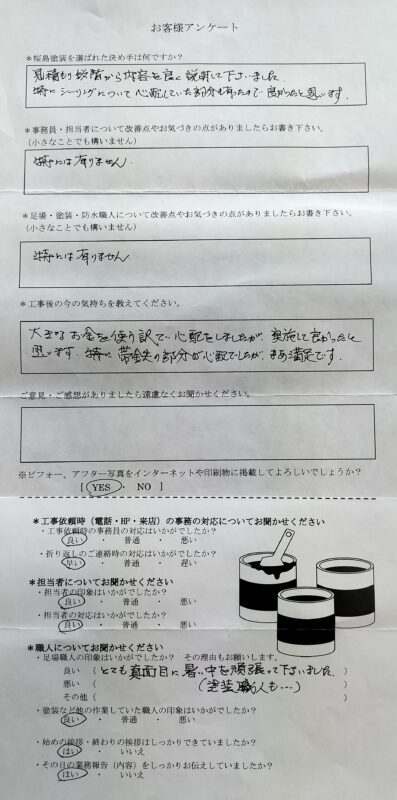 お客様アンケート
＊桜島塗装を選ばれた決め手は何ですか？
見積もり段階から内容を良く説明して下さいました。
特にシーリングについて心配していた部分も有ったので良かったと思います。
＊事務員・担当者について改善点やお気づきの点がありましたらお書き下さい。
（小さなことでも構いません）
特には有りません。
＊足場・塗装・防水職人について改善点やお気づきの点がありましたらお書き下さい。
（小さなことでも構いません）
特には有りません
＊工事後の今の気持ちを教えてください。
大きなお金を使う訳で心配をしましたが、実施して良かったと
思います。特に帯鉄の部分が心配でしたが、まあ満足です。
ご意見・ご感想がありましたら遠慮なくお聞かせください。
※ビフォー、アフター写真をインターネットや印刷物に掲載してよろしいでしょうか？
[ YES ・ NO ]
＊工事依頼時（電話・HP・来店）の事務の対応についてお聞かせください
・工事依頼時の事務員の対応はいかがでしたか？
良い ・ 普通 ・ 悪い
・折り返しのご連絡時の対応はいかがでしたか？
早い ・ 普通 ・ 遅い
＊担当者についてお聞かせください
・担当者の印象はいかがでしたか？
良い ・ 普通 ・ 悪い
・担当者の対応はいかがでしたか？
良い ・ 普通 ・ 悪い
＊職人についてお聞かせください
・足場職人の印象はいかがでしたか？ その理由もお願いします。
良い （とても真面目に暑い中を頑張って下さいました。 ）
悪い （ （塗装職人も・・・） ）
その他（ ）
・塗装など他の作業していた職人の印象はいかがでしたか？
良い ・ 普通 ・ 悪い
・始めの挨拶・終わりの挨拶はしっかりできていましたか？
はい ・ いいえ
・その日の業務報告（内容）をしっかりお伝えしていましたか？
はい ・ いいえ